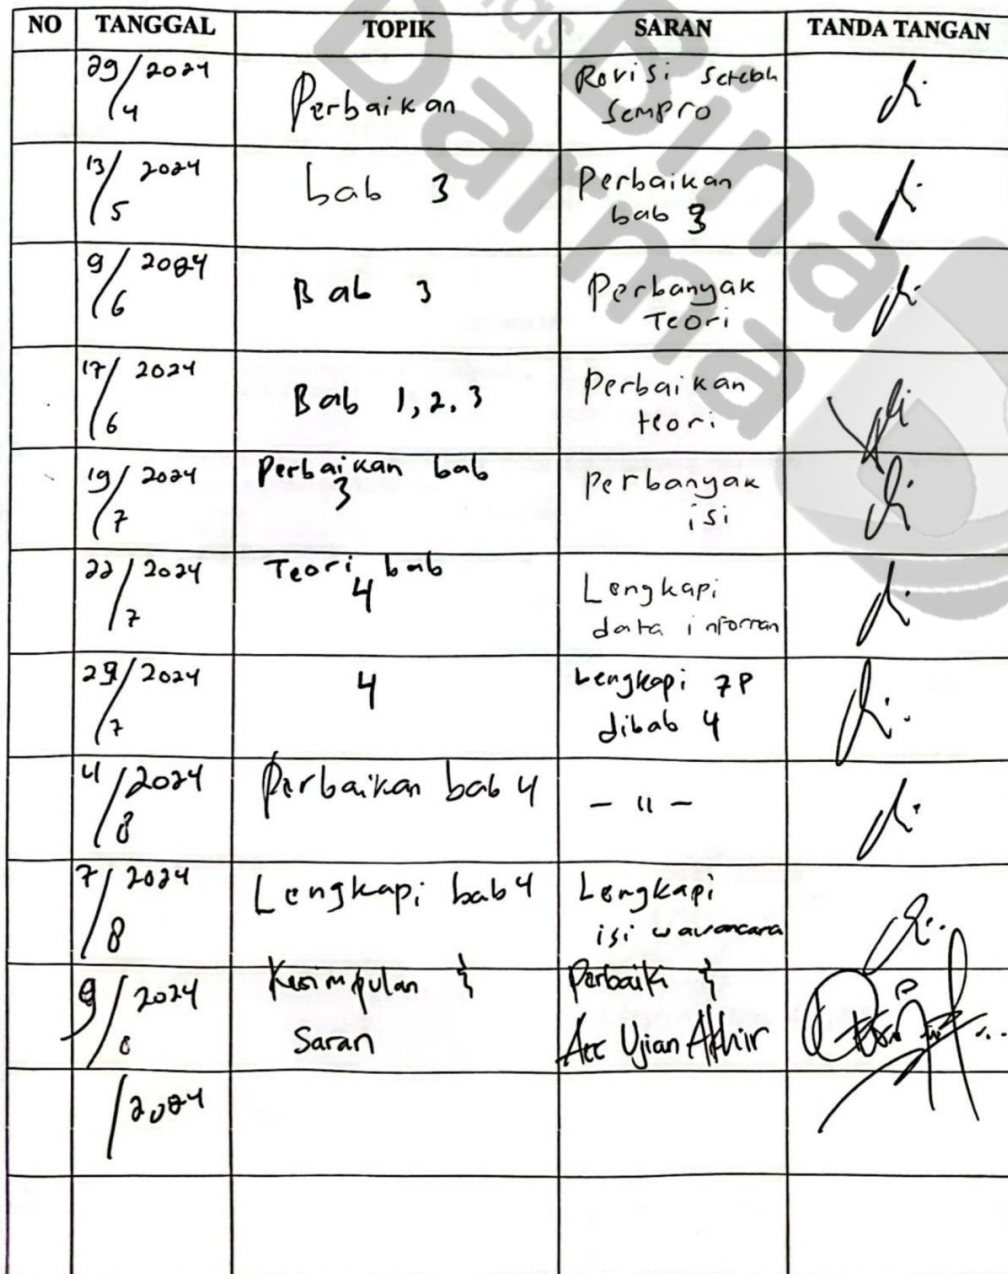 NO TANGGAL TOPIK SARAN TANDA TANGAN
29/4 2024 Perbaikan Revisi Setelah
Sempro
13/5 2024 bab 3 Perbaikan
bab 3
9/6 2024 Bab 3 Perbanyak
Teori
17/6 2024 Bab 1, 2, 3 Perbaikan
teori
19/7 2024 Perbaikan bab
3 Perbanyak
isi
22/7 2024 Teori bab
4 Lengkapi
data informan
29/7 2024 4 Lengkapi 7P
dibab 4
4/8 2024 Perbaikan bab 4 – 11 –
7/8 2024 Lengkapi bab 4 Lengkapi
isi wawancara
9/8 2024 Kesimpulan &
Saran Perbaiki &
Acc Ujian Akhir
/2024
Bina
Darma